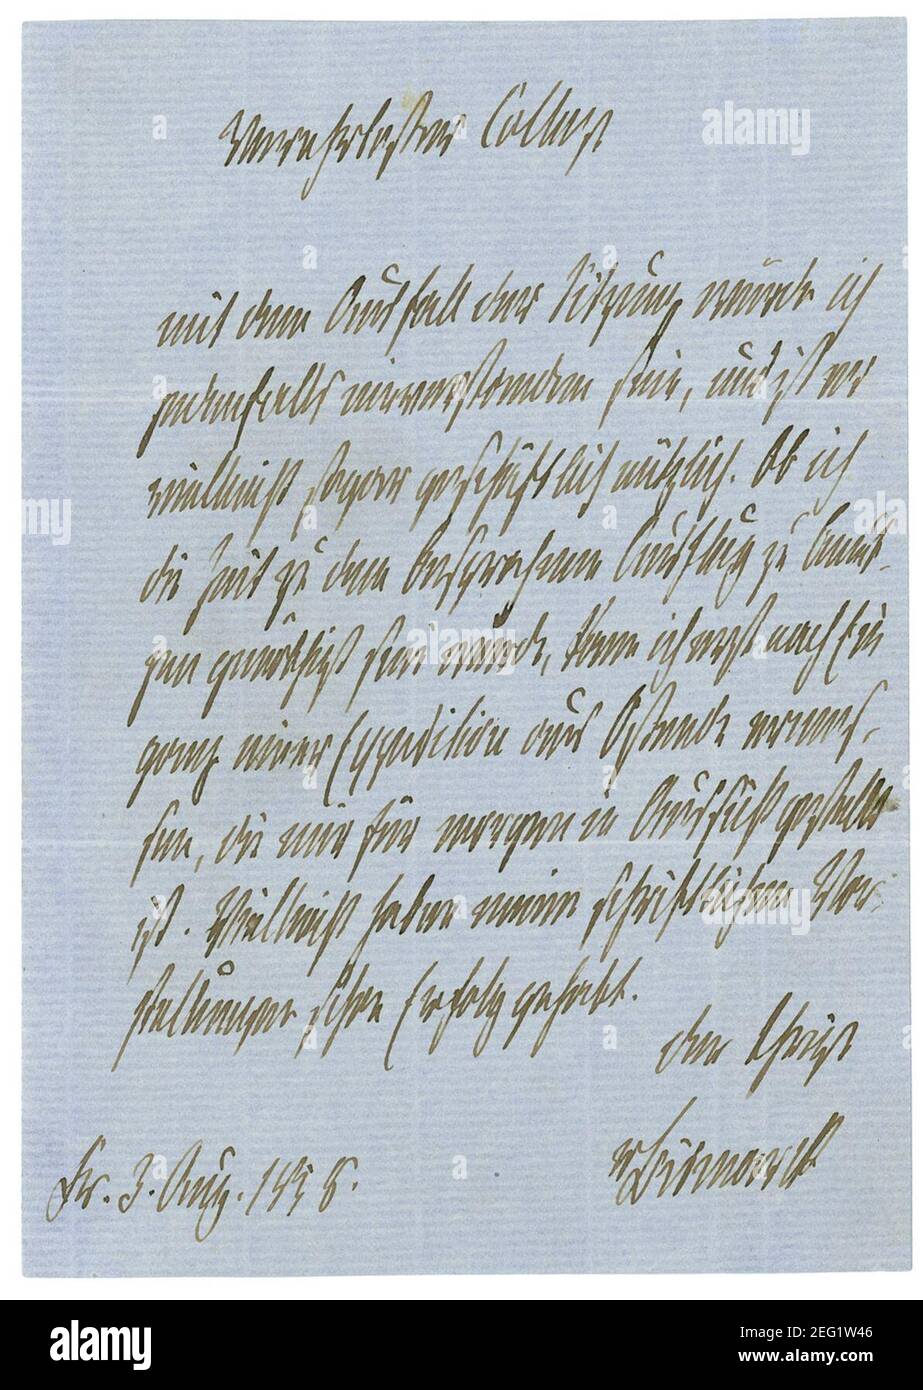 Verehrtester College
mit dem Ausfall der Sitzung würde ich
jedenfalls einverstanden sein, und ist er
vielleicht sogar geschäftlich nützlich. Ob ich
die Zeit zu dem besprochenen Ausflug zu benut-
zen genöthigt sein würde, kann ich erst nach Ein
gang einer Expedition aus Ostende ermes-
sen, die mir für morgen in Aussicht gestellt
ist. Vielleicht haben meine schriftlichen Vor-
stellungen schon Erfolg gehabt.
der Ihrige
v Bismarck
Fr. 3. Aug. 1856.
a alamy
alamy
Image ID: 2EG1W46
www.alamy.com